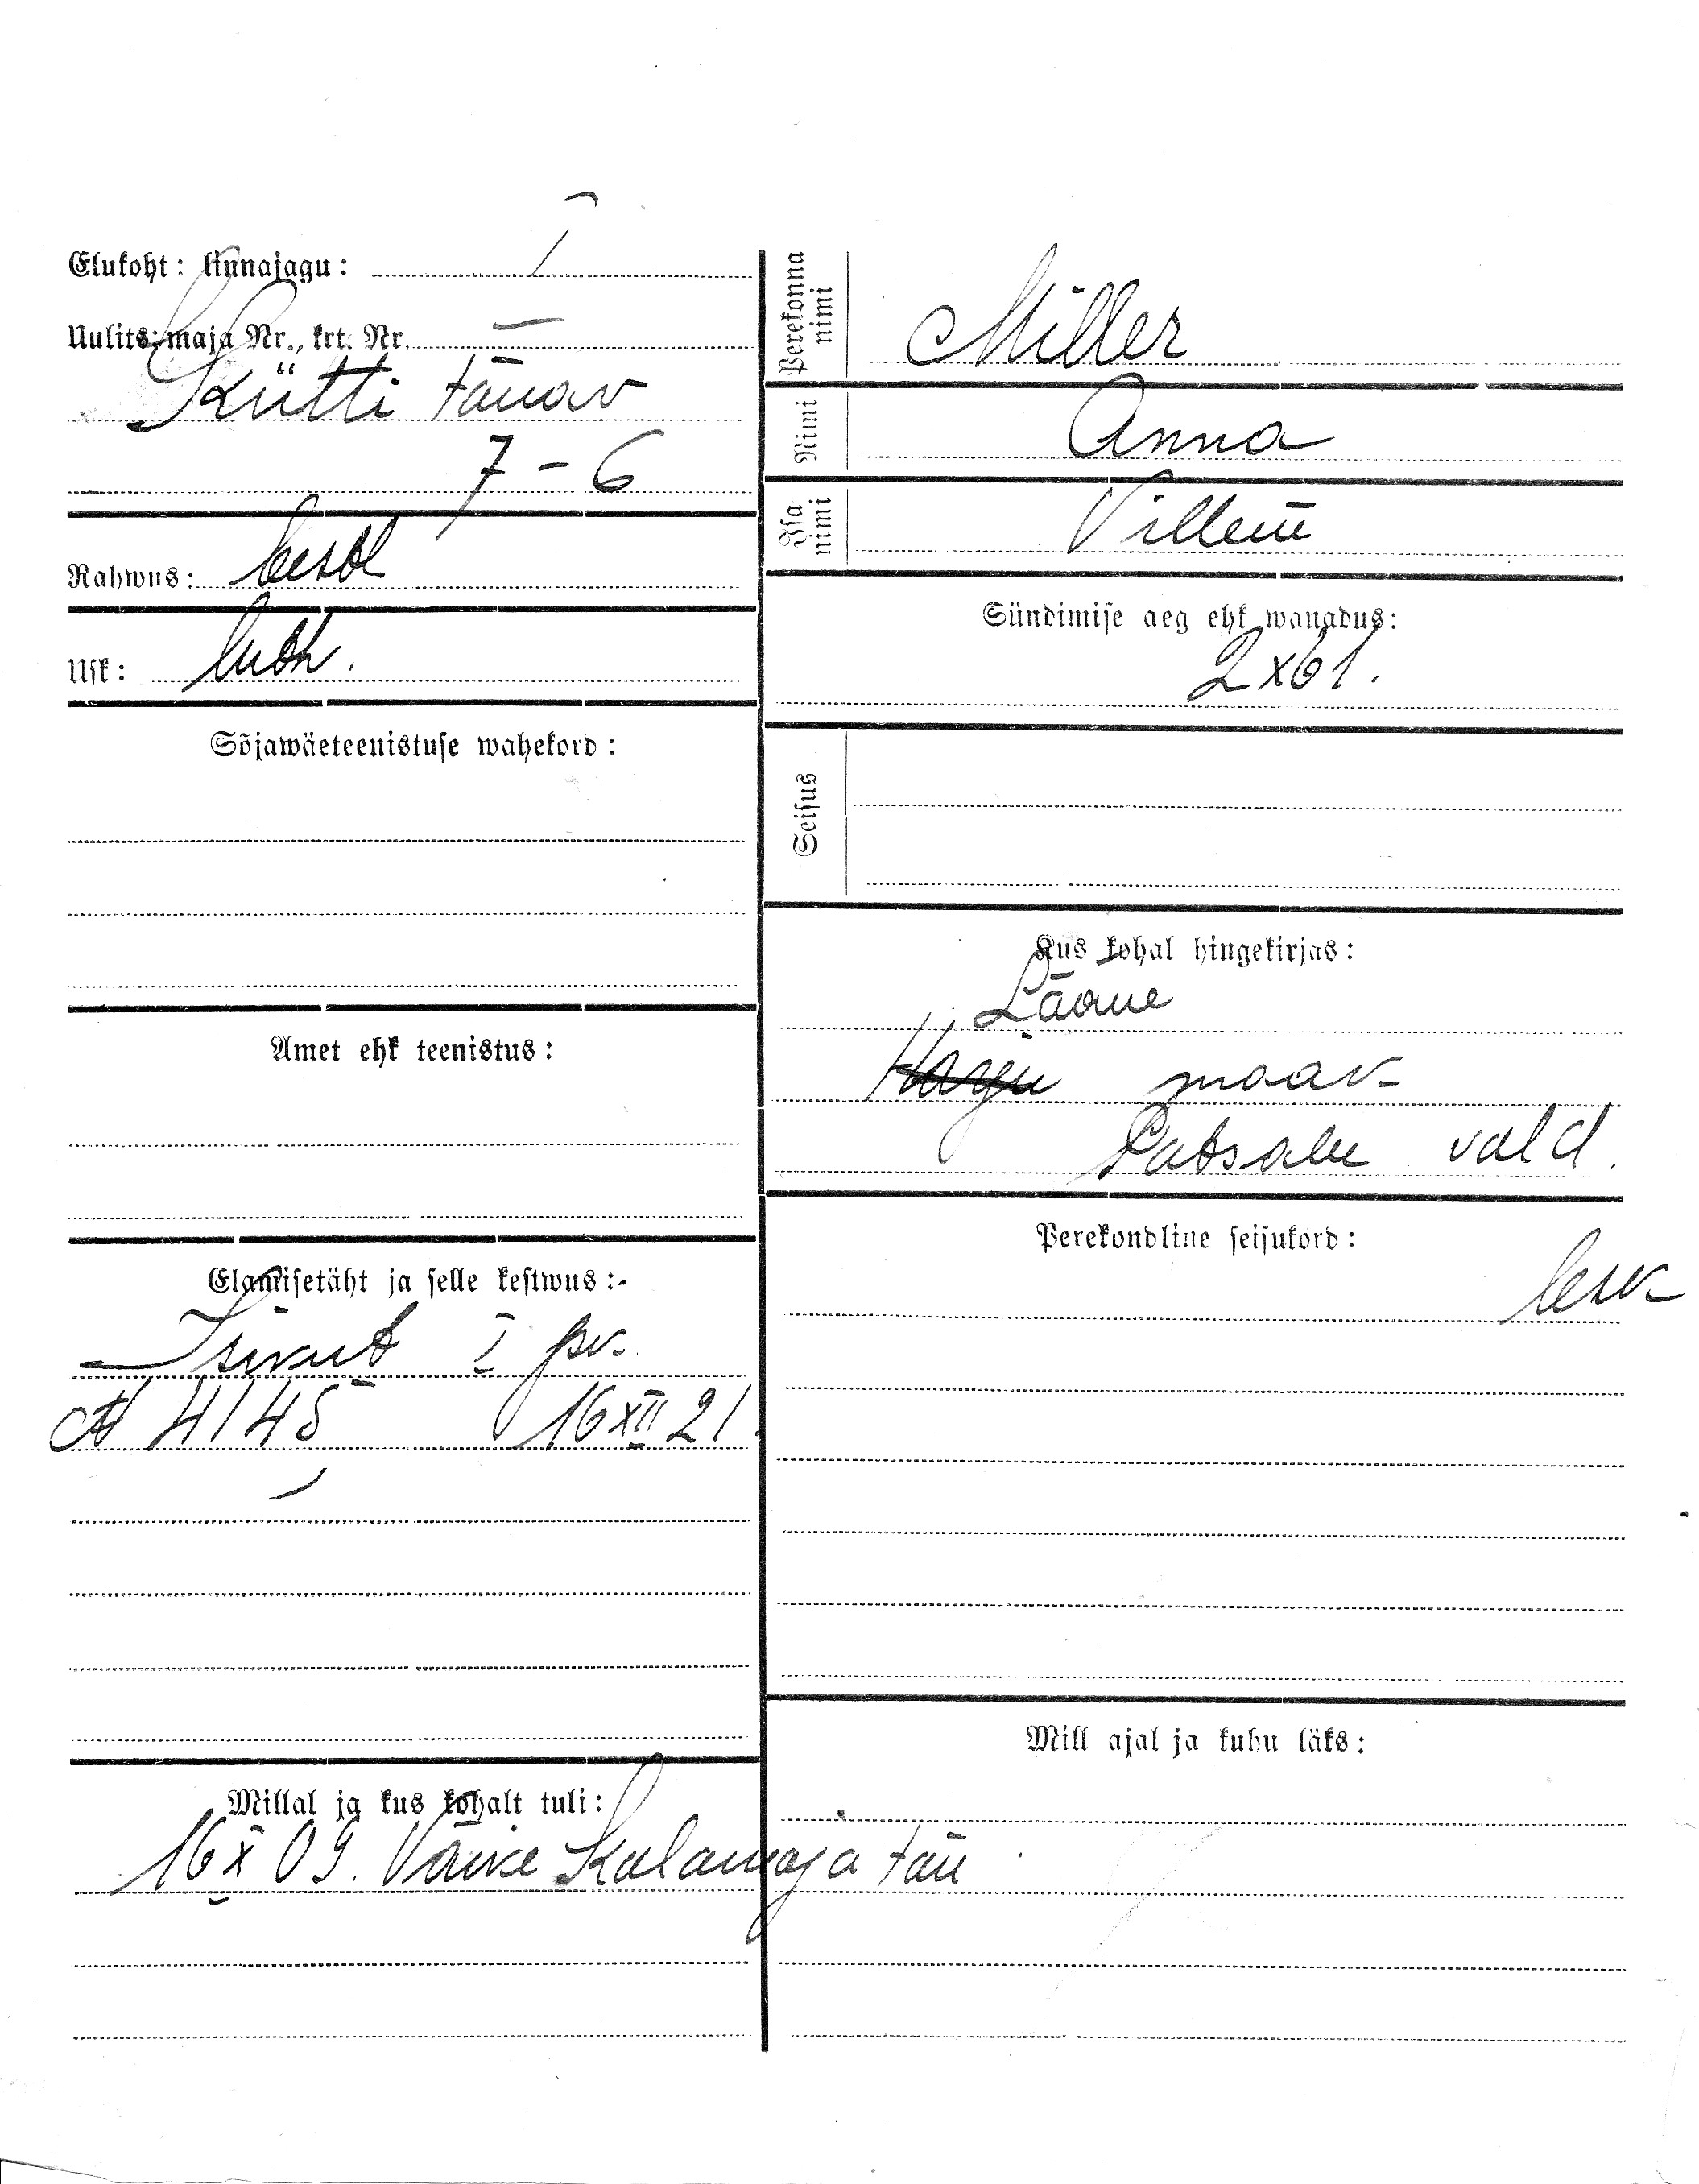 Elukoht: linnajagu: I
Uulits: maja Nr., krt. Nr.
Kütti tänav
7-6
Rahwus: eestl
Usk: luth.
Sõjawäeteenistuse wahekord:
Amet ehk teenistus:
Elamisetäht ja selle kestwus:
Isikut I jsk.
A 4145 16 XII 21.
Millal ja kus kohalt tuli:
16 X 09. Väike Kalamaja tän
Perekonna
nimi
Miller
Nimi
Anna
Isa
nimi
Villem
Sündimise aeg ehk wanadus:
2 X 61.
Seisus
Kus kohal hingekirjas:
Lääne
Harju maak
Patsalu vald.
Perekondline seisukord:
lesk
Mill ajal ja kuhu läks: